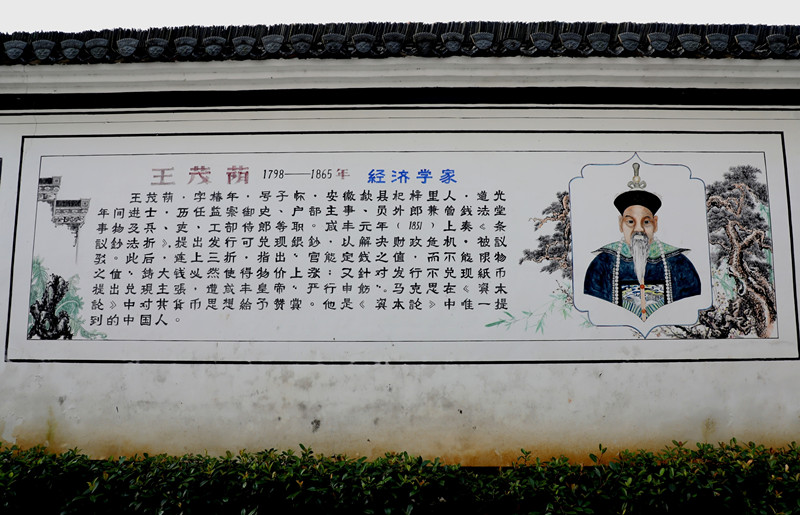 王茂荫 1798——1865年 经济学家
王茂荫，字椿年，号子怀，安徽歙县杞梓里人，道光
年间进士，历任监察御史、户部主事、员外郎兼管钱法堂
事物及兵、吏、工部侍郎等职。咸丰元年（1851）上奏《条
议鈔法折》，提出发行可兑现銀鈔，以解决财政危机，被议
驳。此后，連上三折，指出“官能定钱之值，而不能限物
之值”，铸大钱必然使得物价上涨；又针对发行不兑現紙币
提出兑現主張，遭咸丰皇帝“严行申飭”。马克思在《資本
論》中对其货币思想給予赞賞。他是《資本論》中唯一提
到的中国人。